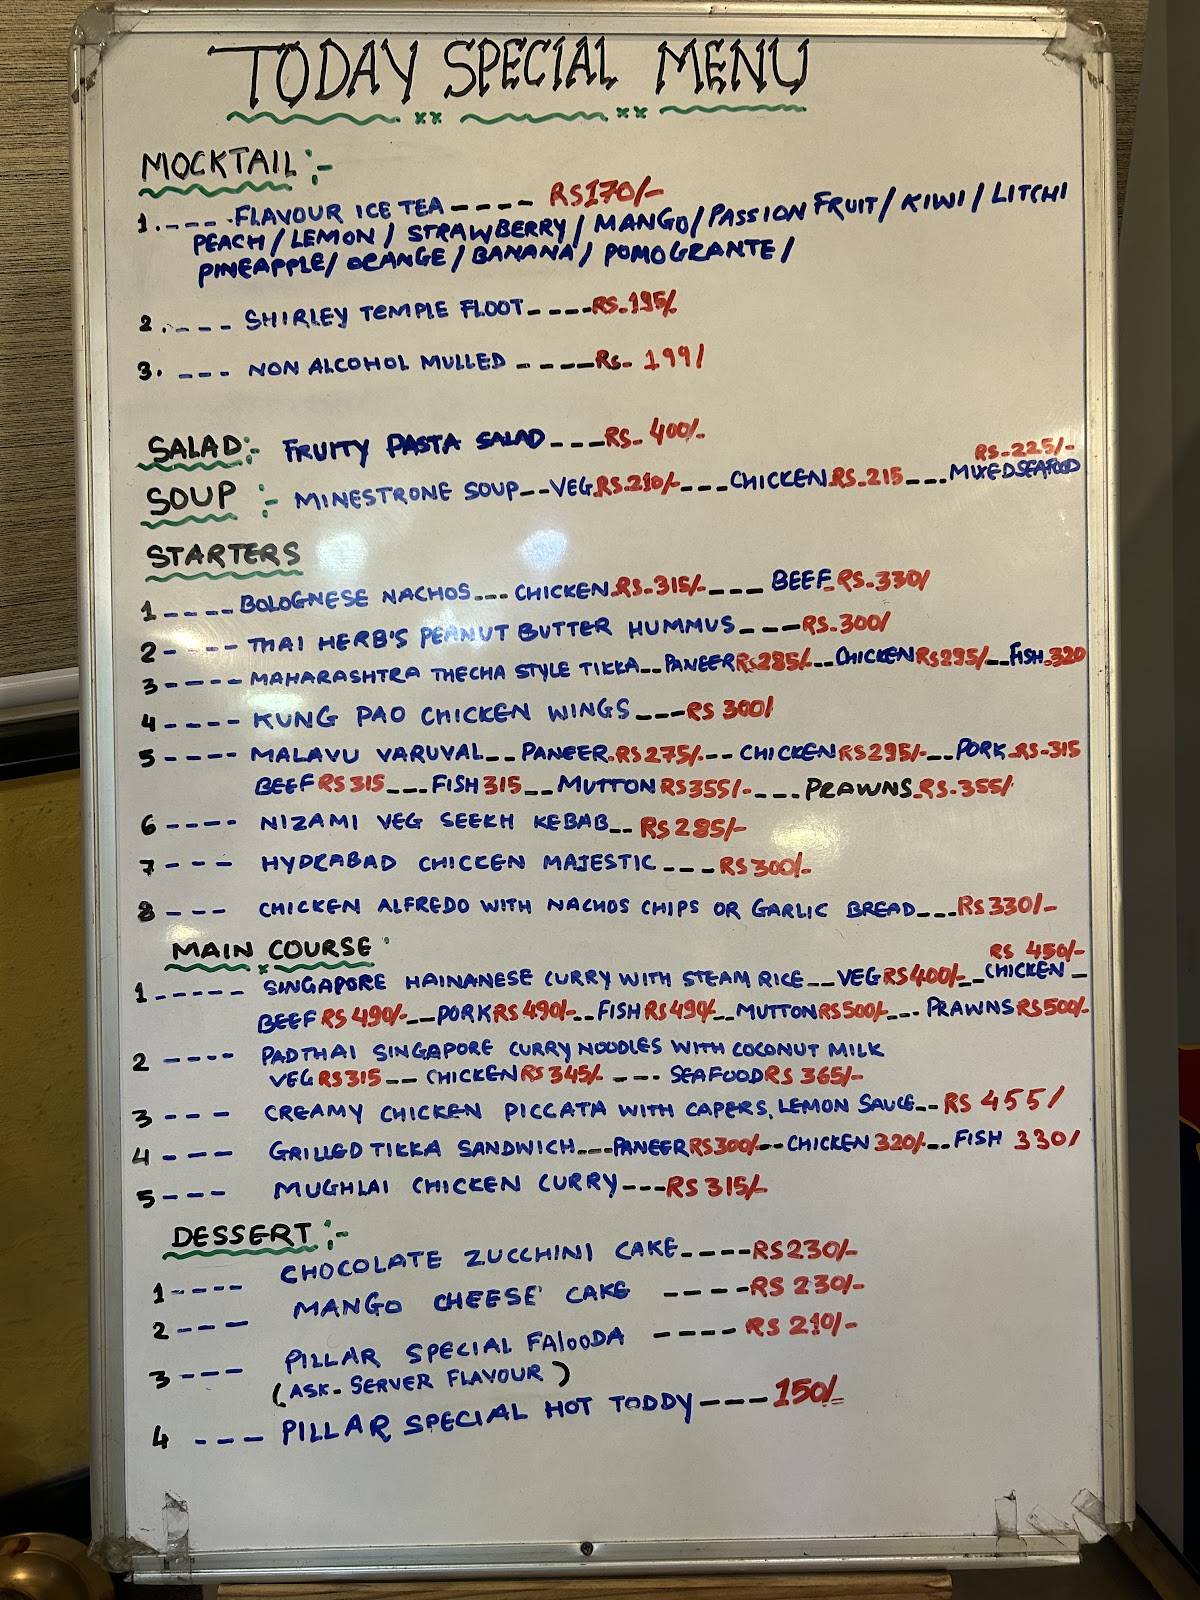 TODAY SPECIAL MENU
MOCKTAIL :-
1. ---- FLAVOUR ICE TEA ---- RS170/-
PEACH / LEMON / STRAWBERRY / MANGO / PASSION FRUIT / KIWI / LITCHI
PINEAPPLE / ORANGE / BANANA / POMOGRANTE /
2. ---- SHIRLEY TEMPLE FLOOT ---- RS.195/-
3. --- NON ALCOHOL MULLED ---- Rs- 199/
SALAD:- FRUITY PASTA SALAD --- RS- 400/-
RS.225/-
SOUP :- MINESTRONE SOUP -- VEG RS.210/- --- CHICKEN RS.215 --- MIXED SEAFOOD
STARTERS
1 ---- BOLOGNESE NACHOS --- CHICKEN RS.315/- --- BEEF RS.330/
2 ---- THAI HERB'S PEANUT BUTTER HUMMUS --- RS.300/
3 ---- MAHARASHTRA THECHA STYLE TIKKA -- PANEER RS285/- -- CHICKEN RS295/- -- FISH 320
4 ---- KUNG PAO CHICKEN WINGS --- RS 300/
5 ---- MALAVU VARUVAL -- PANEER RS275/- -- CHICKEN RS295/- -- PORK RS-315
BEEF RS 315 --- FISH 315 -- MUTTON RS355/- --- PRAWNS RS.355/
6 ---- NIZAMI VEG SEEKH KEBAB -- RS 285/-
7 --- HYDERABAD CHICKEN MAJESTIC --- RS 300/-
8 --- CHICKEN ALFREDO WITH NACHOS CHIPS OR GARLIC BREAD --- RS 330/-
MAIN COURSE
RS 450/-
1 ----- SINGAPORE HAINANESE CURRY WITH STEAM RICE -- VEG RS400/- -- CHICKEN -
BEEF RS 490/- -- PORK RS 490/- -- FISH RS 490/- -- MUTTON RS500/- --- PRAWNS RS500/-
2 ---- PADTHAI SINGAPORE CURRY NOODLES WITH COCONUT MILK
VEG RS315 -- CHICKEN RS 345/- --- SEAFOOD RS 365/-
3 --- CREAMY CHICKEN PICCATA WITH CAPERS, LEMON SAUCE -- RS 455/
4 --- GRILLED TIKKA SANDWICH --- PANEER RS300/- -- CHICKEN 320/- -- FISH 330/
5 --- MUGHLAI CHICKEN CURRY --- RS 315/-
DESSERT :-
1 ---- CHOCOLATE ZUCCHINI CAKE ---- RS 230/-
2 --- MANGO CHEESE CAKE ---- RS 230/-
3 --- PILLAR SPECIAL FALOODA ---- RS 210/-
(ASK - SERVER FLAVOUR)
4 --- PILLAR SPECIAL HOT TODDY --- 150/-